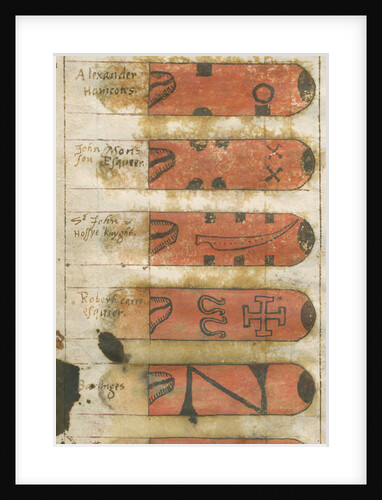 Alexander
Hanicons
John Mon=
son Esquier.
Sr John
Hossye knyght.
Robert carr
esquier.
Barkinges